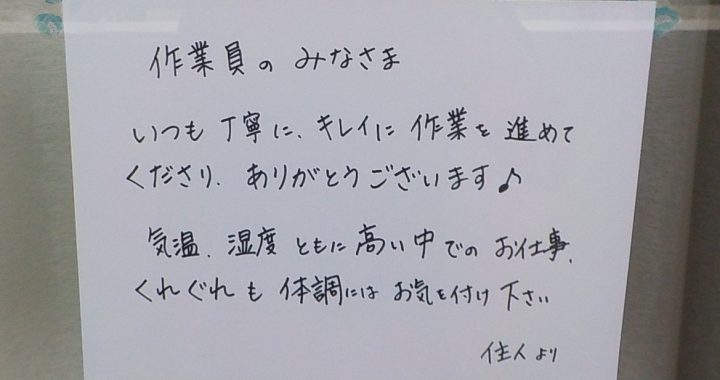 作業員のみなさま
いつも丁寧に、キレイに作業を進めて
くださり、ありがとうございます♪
気温、湿度ともに高い中でのお仕事、
くれぐれも体調にはお気を付け下さい
住人より